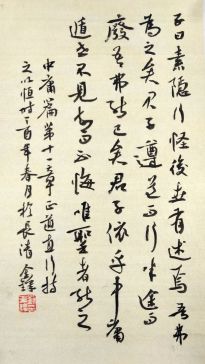 子曰素隐行怪后世有述焉吾弗
为之矣君子遵道而行半途而
废吾弗能已矣君子依乎中庸
遁世不见知而不悔唯圣者能之
中庸篇第十一章正道直行持
之以恒时丁酉年春月於长清